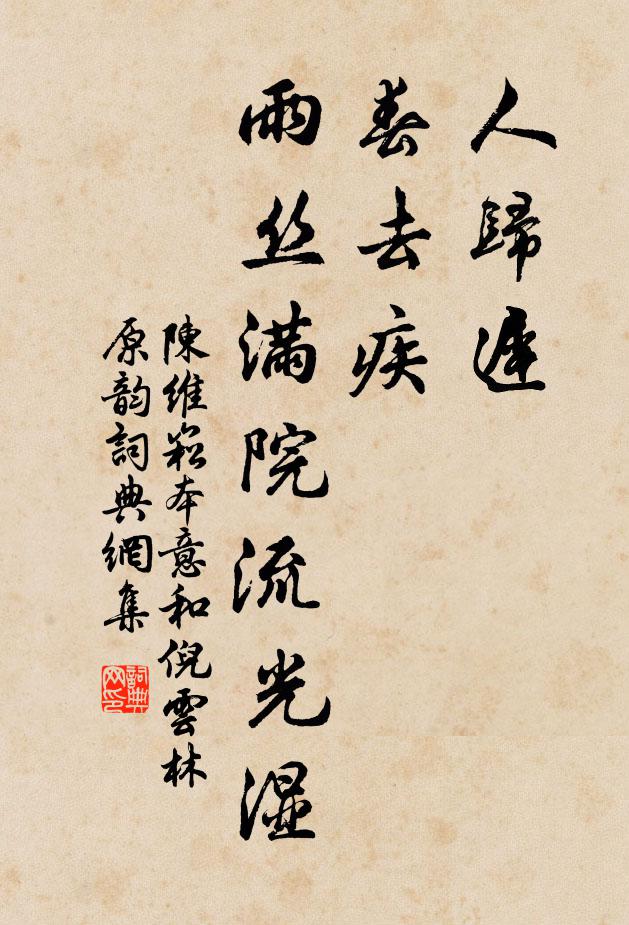 人歸遲
春去疾
雨丝滿院流光濕
陳維崧本意和倪雲林
原韵詞典網集
詞典網印